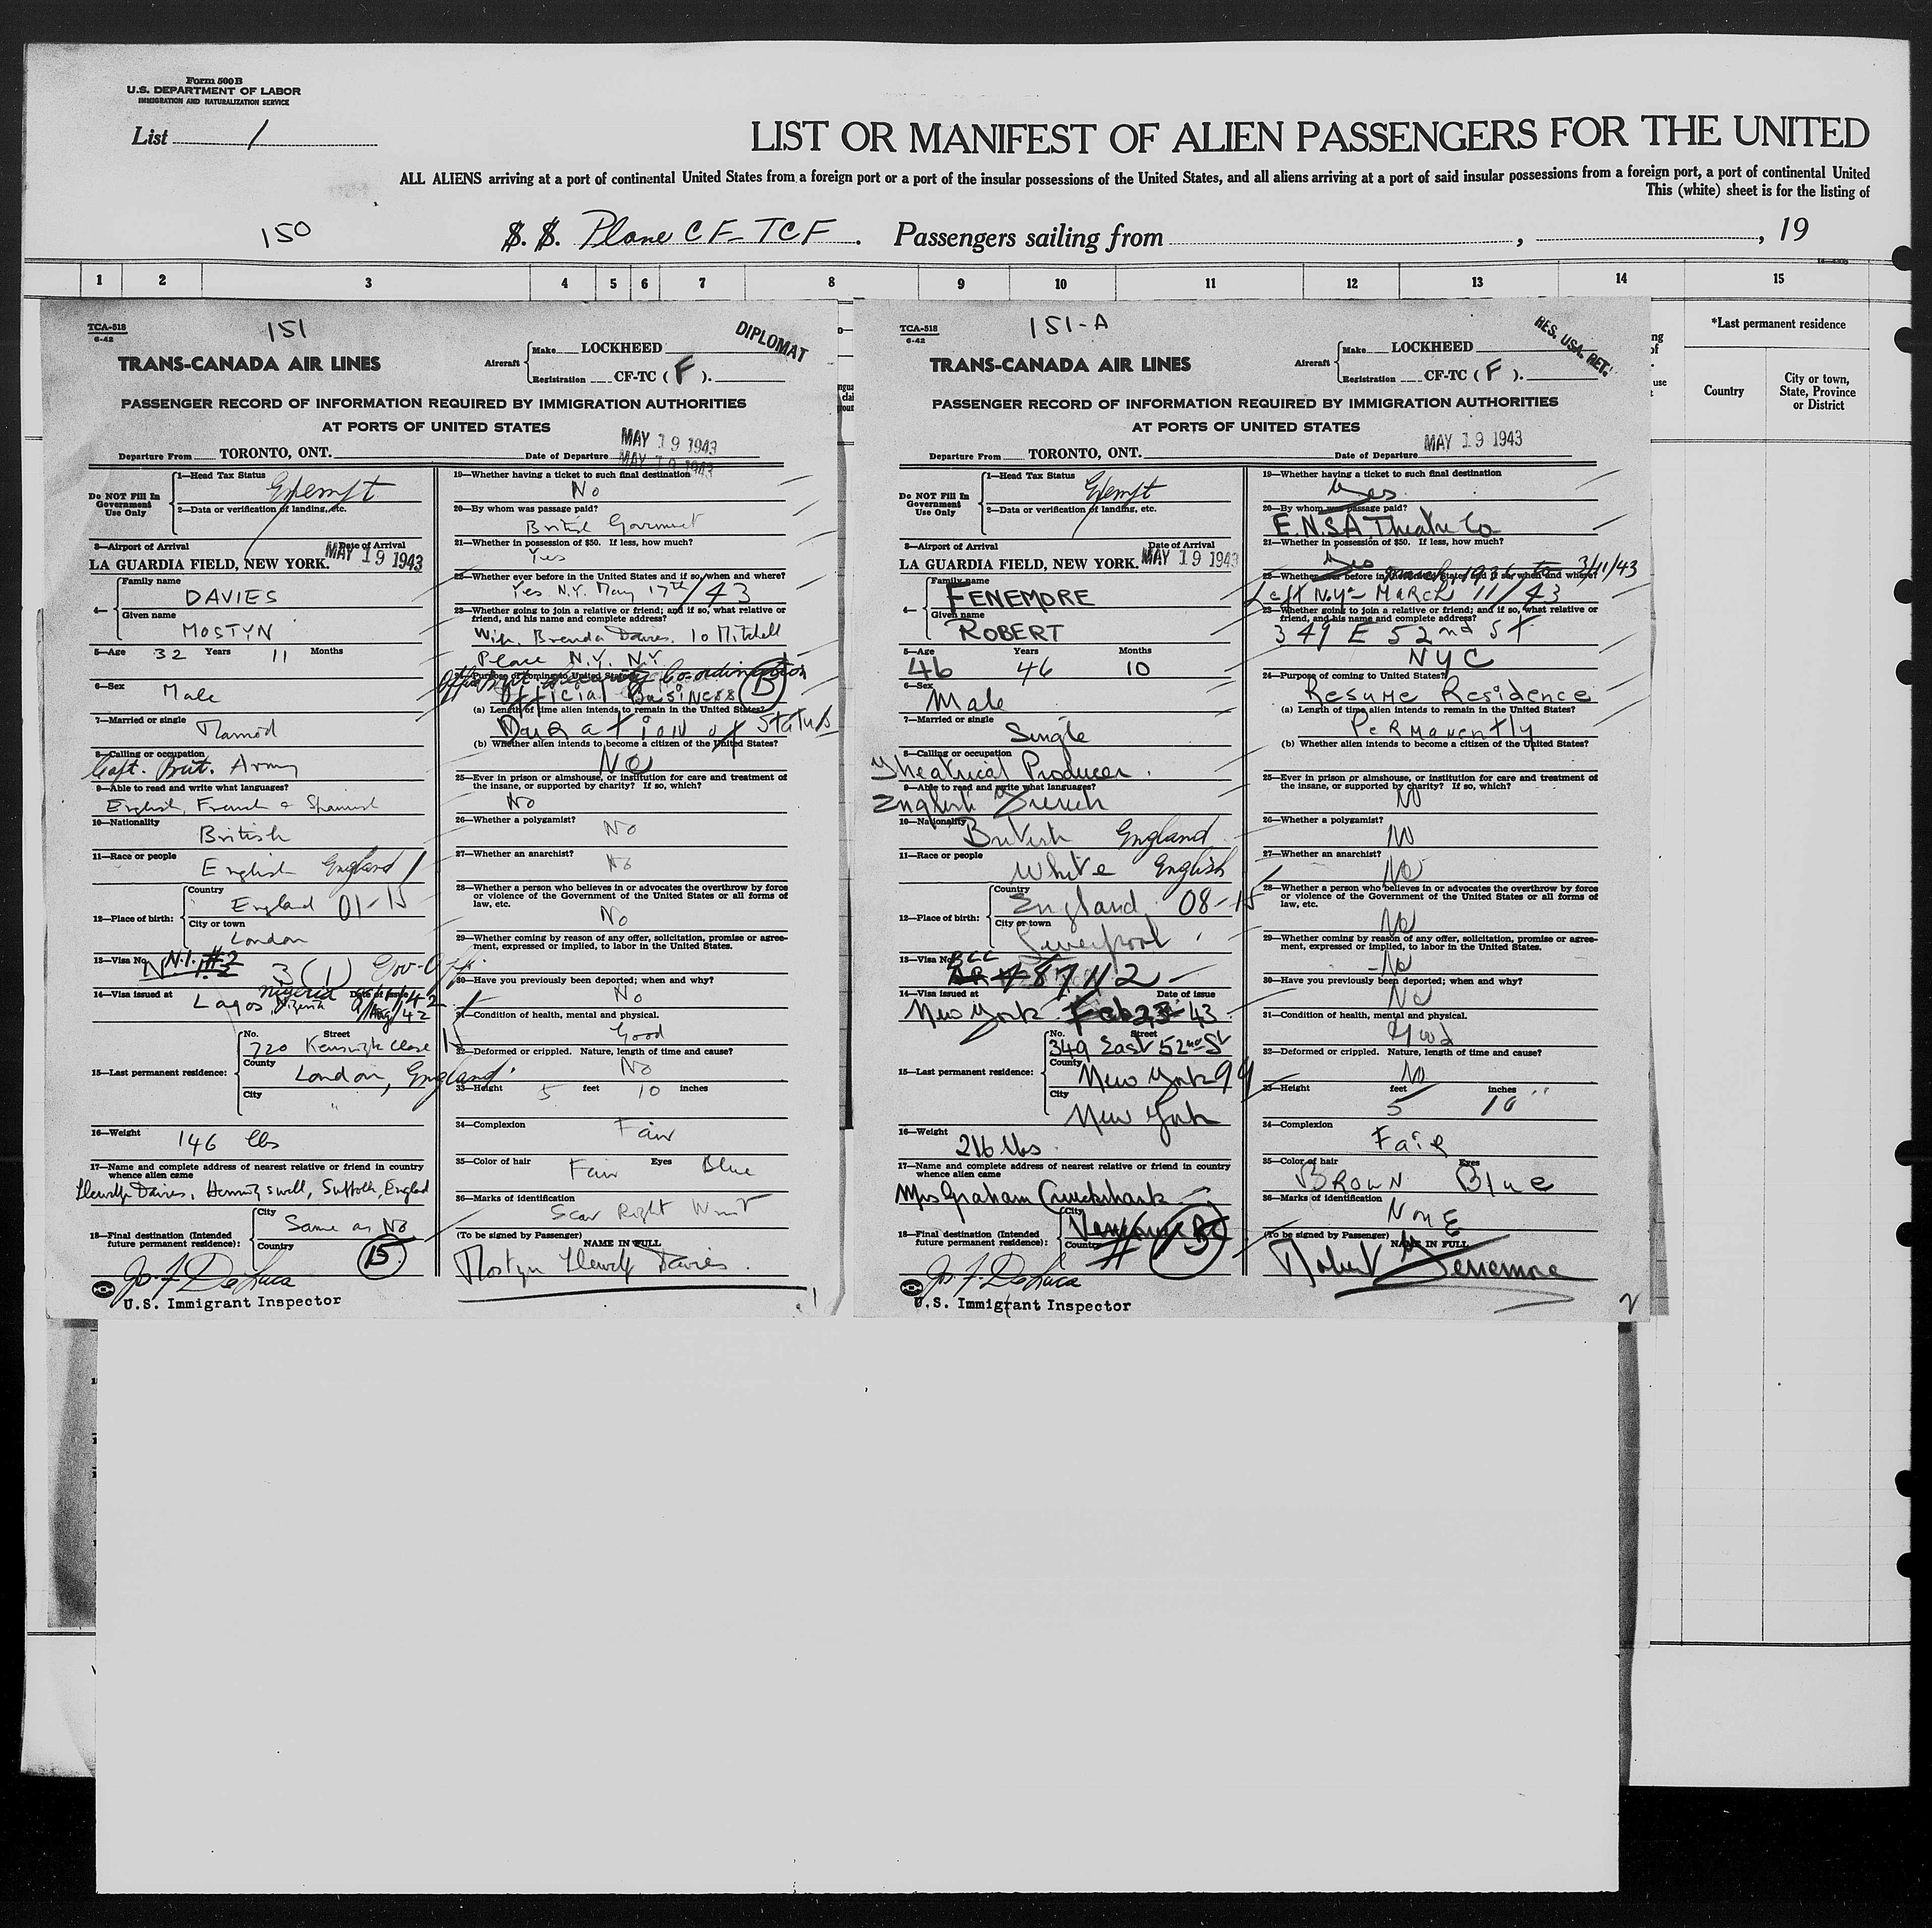 Form 500B
U.S. DEPARTMENT OF LABOR
IMMIGRATION AND NATURALIZATION SERVICE
List 1
LIST OR MANIFEST OF ALIEN PASSENGERS FOR THE UNITED
ALL ALIENS arriving at a port of continental United States from a foreign port or a port of the insular possessions of the United States, and all aliens arriving at a port of said insular possessions from a foreign port, a port of continental United
This (white) sheet is for the listing of
150 S. S. Plane CF-TCF. Passengers sailing from , , 19
1 2 3 4 5 6 7 8 9 10 11 12 13 14 15
*Last permanent residence
Country
City or town, State, Province or District
TCA-518
6-42
151
DIPLOMAT
TRANS-CANADA AIR LINES
Aircraft
Make LOCKHEED
Registration CF-TC ( F ).
PASSENGER RECORD OF INFORMATION REQUIRED BY IMMIGRATION AUTHORITIES
AT PORTS OF UNITED STATES
MAY 19 1943
Departure From TORONTO, ONT. Date of Departure MAY 19 1943
Do NOT Fill In Government Use Only
1—Head Tax Status
Exempt
2—Data or verification of landing, etc.
3—Airport of Arrival Date of Arrival
LA GUARDIA FIELD, NEW YORK. MAY 19 1943
4—
Family name
DAVIES
Given name
MOSTYN
5—Age 32 Years 11 Months
6—Sex
Male
7—Married or single
Married
8—Calling or occupation
Capt. Brit. Army
9—Able to read and write what languages?
English, French & Spanish
10—Nationality
British
11—Race or people
English England
12—Place of birth:
Country
England 01-15
City or town
London
13—Visa No.
N.I. #2
3 (1)
14—Visa issued at Date of issue
Lagos, Nigeria
15—Last permanent residence:
No. Street
720 Close
County
London, England
City
"
16—Weight
146 lbs
17—Name and complete address of nearest relative or friend in country
whence alien came
Davies, Suffolk, England
18—Final destination (Intended
future permanent residence):
City
Same as No
Country
15
Jos. F. DeLuca
U.S. Immigrant Inspector
19—Whether having a ticket to such final destination
No
20—By whom was passage paid?
British Government
21—Whether in possession of $50. If less, how much?
Yes
22—Whether ever before in the United States and if so, when and where?
Yes N.Y. May 17th/43
23—Whether going to join a relative or friend; and if so, what relative or
friend, and his name and complete address?
Wife. Brenda Davies. 10 Mitchell
Place N.Y. N.Y.
24—Purpose of coming to United States?
Security Co-ordination
Official Business
(a) Length of time alien intends to remain in the United States?
Duration of Status
(b) Whether alien intends to become a citizen of the United States?
NO
25—Ever in prison or almshouse, or institution for care and treatment of
the insane, or supported by charity? If so, which?
No
26—Whether a polygamist?
No
27—Whether an anarchist?
No
28—Whether a person who believes in or advocates the overthrow by force
or violence of the Government of the United States or all forms of
law, etc.
No
29—Whether coming by reason of any offer, solicitation, promise or agree-
ment, expressed or implied, to labor in the United States.
30—Have you previously been deported; when and why?
No
31—Condition of health, mental and physical.
Good
32—Deformed or crippled. Nature, length of time and cause?
No
33—Height 5 feet 10 inches
34—Complexion
Fair
35—Color of hair Fair Eyes Blue
36—Marks of identification
Scar Right Wrist
(To be signed by Passenger) NAME IN FULL
Mostyn Llewelyn Davies.
1
TCA-518
6-42
151-A
RES. USA. RET.
TRANS-CANADA AIR LINES
Aircraft
Make LOCKHEED
Registration CF-TC ( F ).
PASSENGER RECORD OF INFORMATION REQUIRED BY IMMIGRATION AUTHORITIES
AT PORTS OF UNITED STATES
Departure From TORONTO, ONT. Date of Departure MAY 19 1943
Do NOT Fill In Government Use Only
1—Head Tax Status
Exempt
2—Data or verification of landing, etc.
3—Airport of Arrival Date of Arrival
LA GUARDIA FIELD, NEW YORK. MAY 19 1943
4—
Family name
FENEMORE
Given name
ROBERT
5—Age 46 Years 46 Months 10
6—Sex
Male
7—Married or single
Single
8—Calling or occupation
Theatrical Producer.
9—Able to read and write what languages?
English French
10—Nationality
British England
11—Race or people
White English
12—Place of birth:
Country
England 08-15
City or town
Liverpool
13—Visa No.
487112
14—Visa issued at Date of issue
New York Feb 23 43
15—Last permanent residence:
No. Street
349 East 52nd St
County
New York 99
City
New York
16—Weight
216 lbs.
17—Name and complete address of nearest relative or friend in country
whence alien came
Mrs Graham Cruickshank
18—Final destination (Intended
future permanent residence):
City
Vancouver BC
Country
Jos. F. DeLuca
U.S. Immigrant Inspector
19—Whether having a ticket to such final destination
Yes
20—By whom was passage paid?
E.N.S.A. Theatre Co
21—Whether in possession of $50. If less, how much?
Yes
22—Whether ever before in the United States and if so, when and where?
March 1936 to 3/11/43
Left N.Y- MARCH 11/43
23—Whether going to join a relative or friend; and if so, what relative or
friend, and his name and complete address?
349 E 52nd ST
NYC
24—Purpose of coming to United States?
Resume Residence
(a) Length of time alien intends to remain in the United States?
PeRMaNeNTly
(b) Whether alien intends to become a citizen of the United States?
25—Ever in prison or almshouse, or institution for care and treatment of
the insane, or supported by charity? If so, which?
NO
26—Whether a polygamist?
NO
27—Whether an anarchist?
No
28—Whether a person who believes in or advocates the overthrow by force
or violence of the Government of the United States or all forms of
law, etc.
No
29—Whether coming by reason of any offer, solicitation, promise or agree-
ment, expressed or implied, to labor in the United States.
No
30—Have you previously been deported; when and why?
No
31—Condition of health, mental and physical.
Good
32—Deformed or crippled. Nature, length of time and cause?
No
33—Height feet inches
5 10
34—Complexion
Fair
35—Color of hair Eyes
BROWN Blue
36—Marks of identification
NONE
(To be signed by Passenger) NAME IN FULL
Robert Fenemore
2